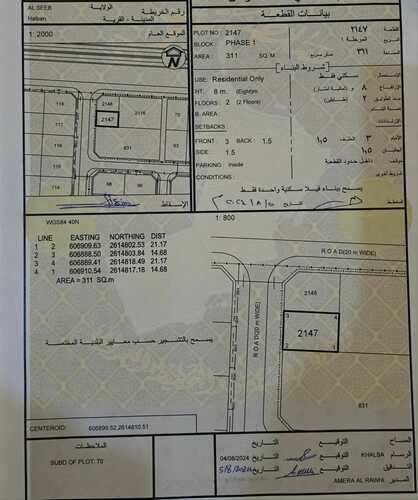 AL SEEB الولاية رقم الخريطة
Halban المدينة - القرية
1: 2000 الموقع العام
114 2148 2116 70
117 2147
831
الإسقاط
بيانات القطعة
PLOT NO : 2147 ٢١٤٧ القطعة
BLOCK : PHASE 1 المرحلة ١ المربع
AREA : 311 SQ. M متر مربع ٣١١ المساحة
شروط البناء
USE: Residential Only سكني فقط
HT. : 8 m. (Eightm) ٨ (ثمانية أمتار)
FLOORS : 2 (2 Floors) ٢ (طابقين)
B. AREA :
SETBACKS
FRONT : 3 BACK 1.5 ٣ الخلف ١,٥
SIDE : 1.5 ١,٥
PARKING : inside داخل حدود القطعة
CONDITIONS :
يسمح ببناء فيلا سكنية واحدة فقط
المخطط
WGS84 40N
LINE EASTING NORTHING DIST
1 2 606909.63 2614802.53 21.17
2 3 606888.50 2614803.84 14.68
3 4 606889.41 2614818.49 21.17
4 1 606910.54 2614817.18 14.68
AREA = 311 SQ.m
1: 800
ROAD(20 m WIDE)
ROAD(20m WIDE)
2148
3 4
2147
2 1
831
يسمح بالتشجير حسب معايير البلدية المختصة
CENTEROID: 606899.52,2614810.51
الملاحظات
SUBD OF PLOT: 70
التاريخ التوقيع المساح
04/08/2024 التاريخ التوقيع KHALSA الرسام
5/8/2024 التاريخ التوقيع
AMERA AL RAWHI المدير